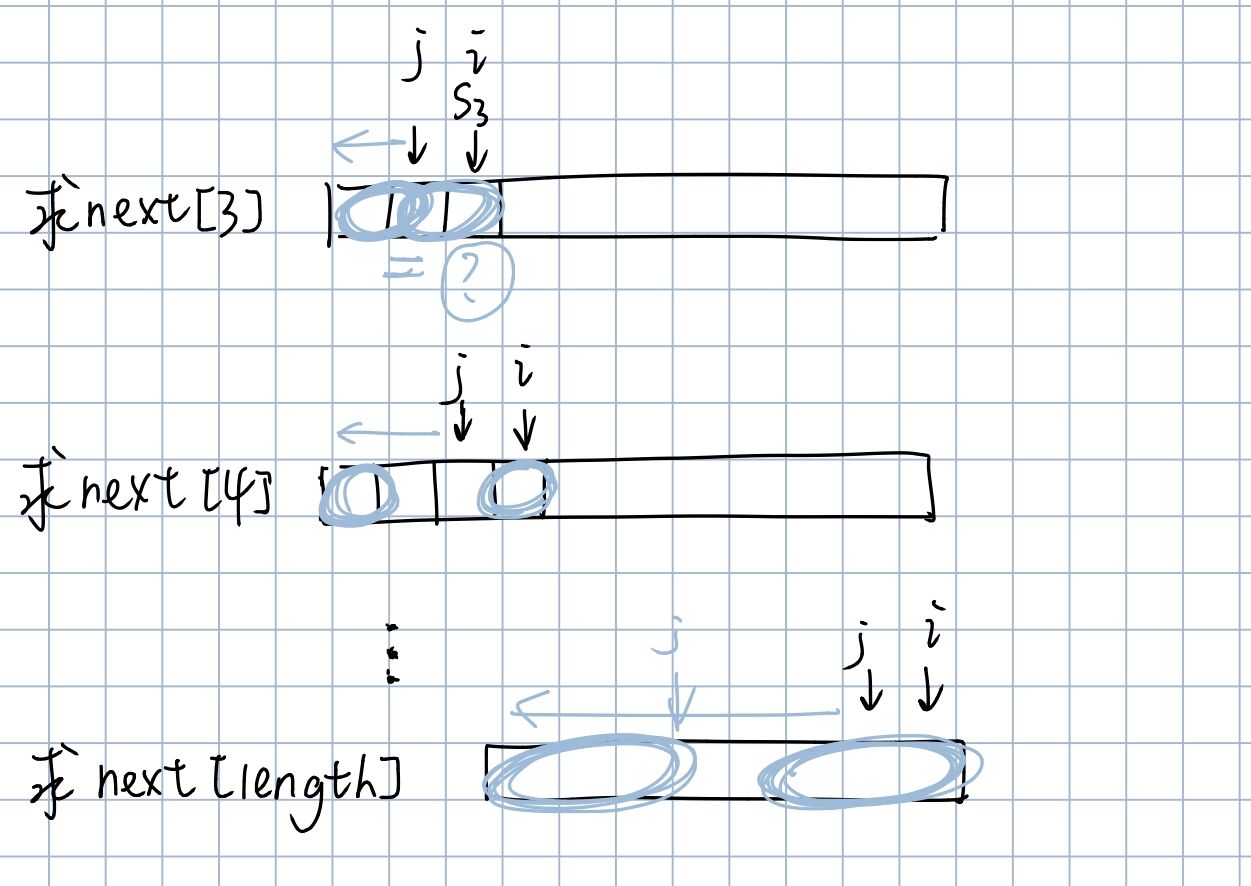 j i
S3
求next[3]
= ?
j i
求next[4]
j j i
求next[length]